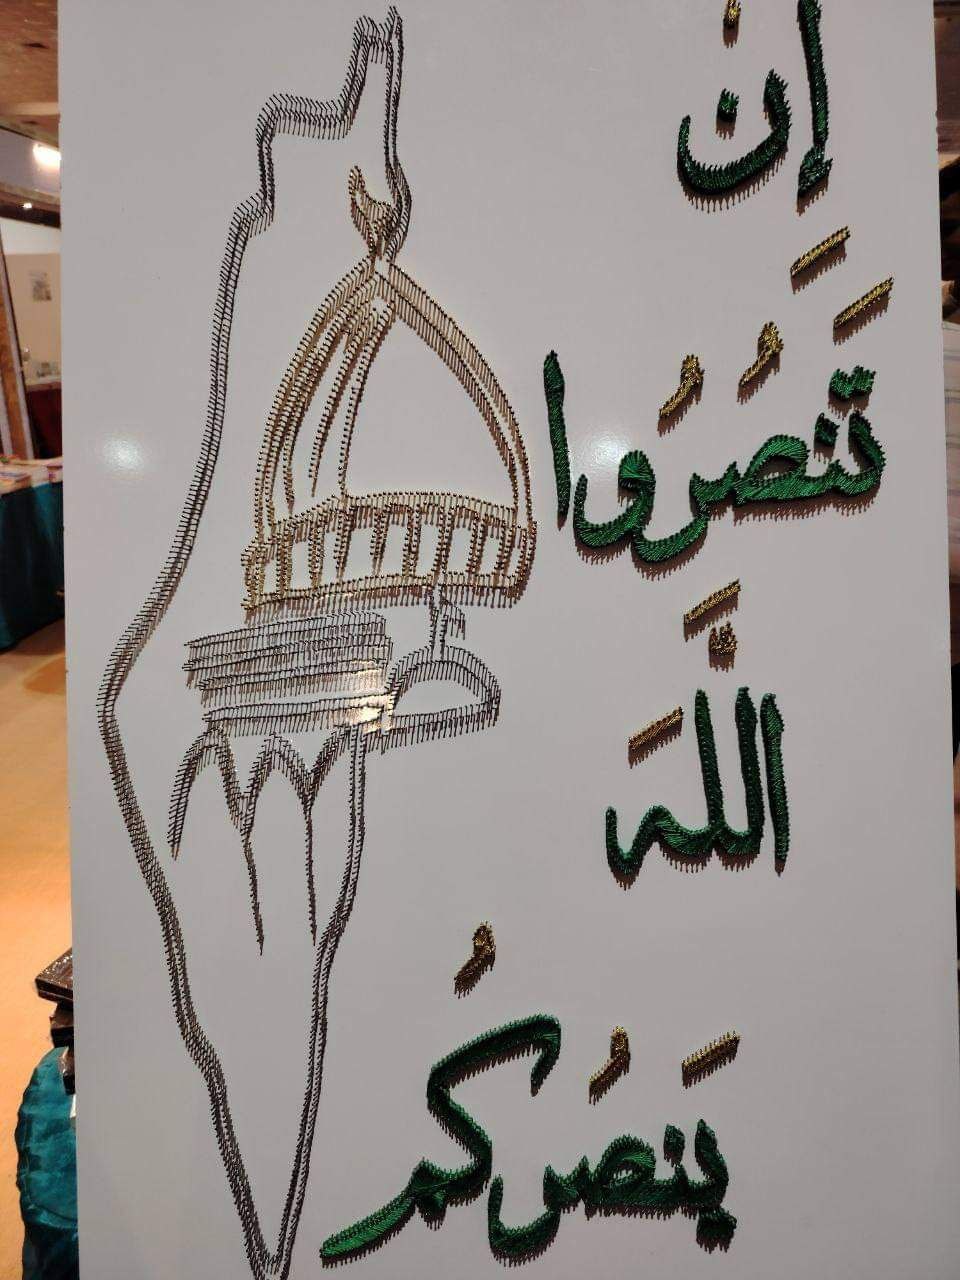 إِنْ
تَنصُرُوا
اللَّهَ
يَنصُركُم